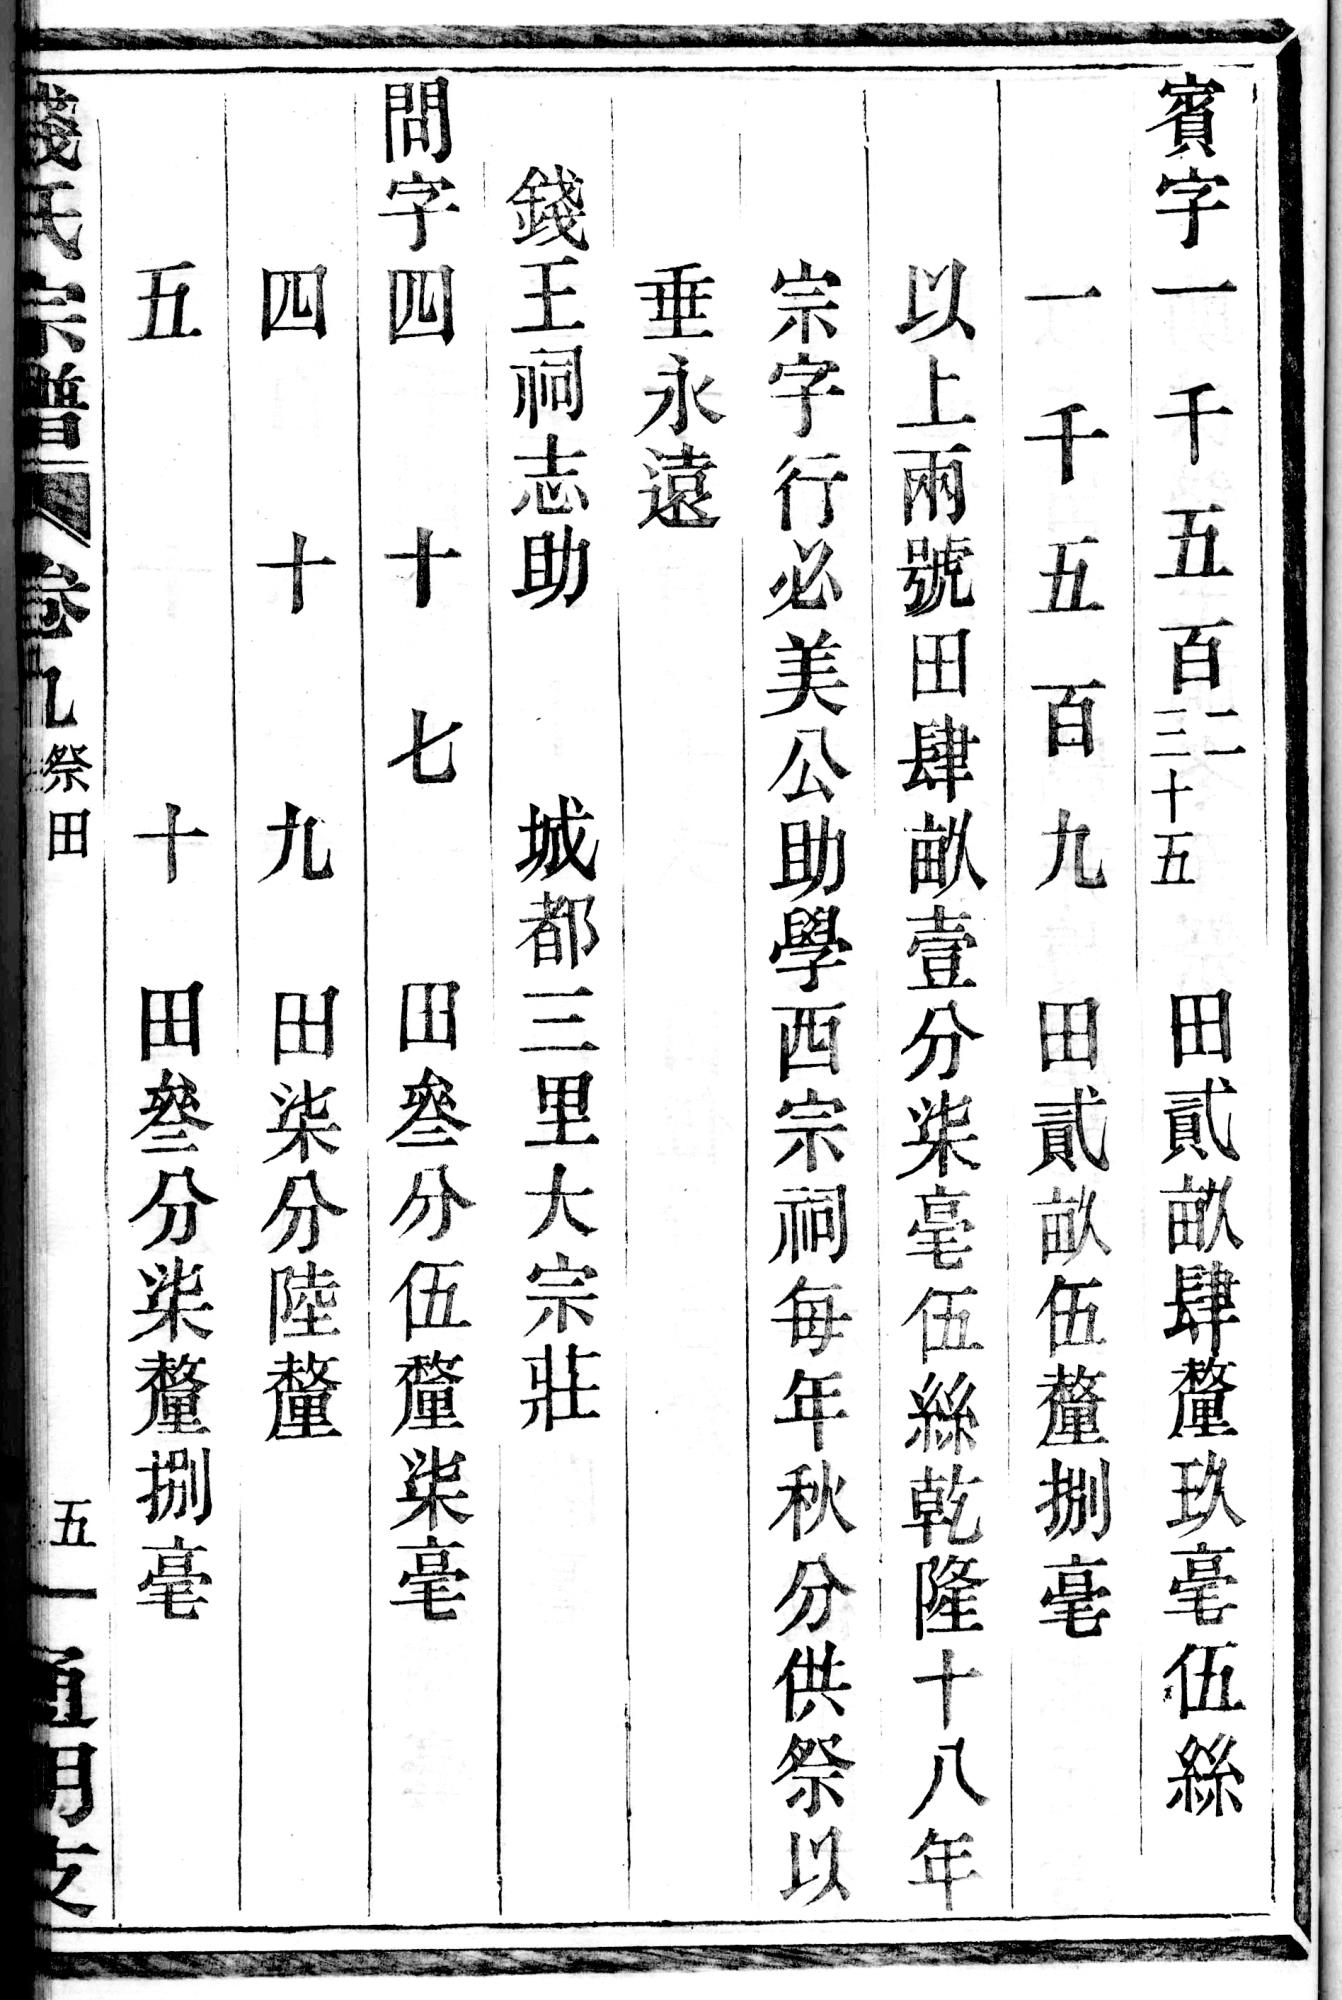 賓字一千五百二三十五 田貳畝肆釐玖毫伍絲
一千五百九 田貳畝伍釐捌毫
以上兩號田肆畝壹分柒毫伍絲乾隆十八年
宗字行必美公助學西宗祠每年秋分供祭以
垂永遠
錢王祠志助 城都三里大宗莊
問字四十七 田叄分伍釐柒毫
四十九 田柒分陸釐
五十 田叄分柒釐捌毫
錢氏宗譜 卷九 祭田 五一 通明支